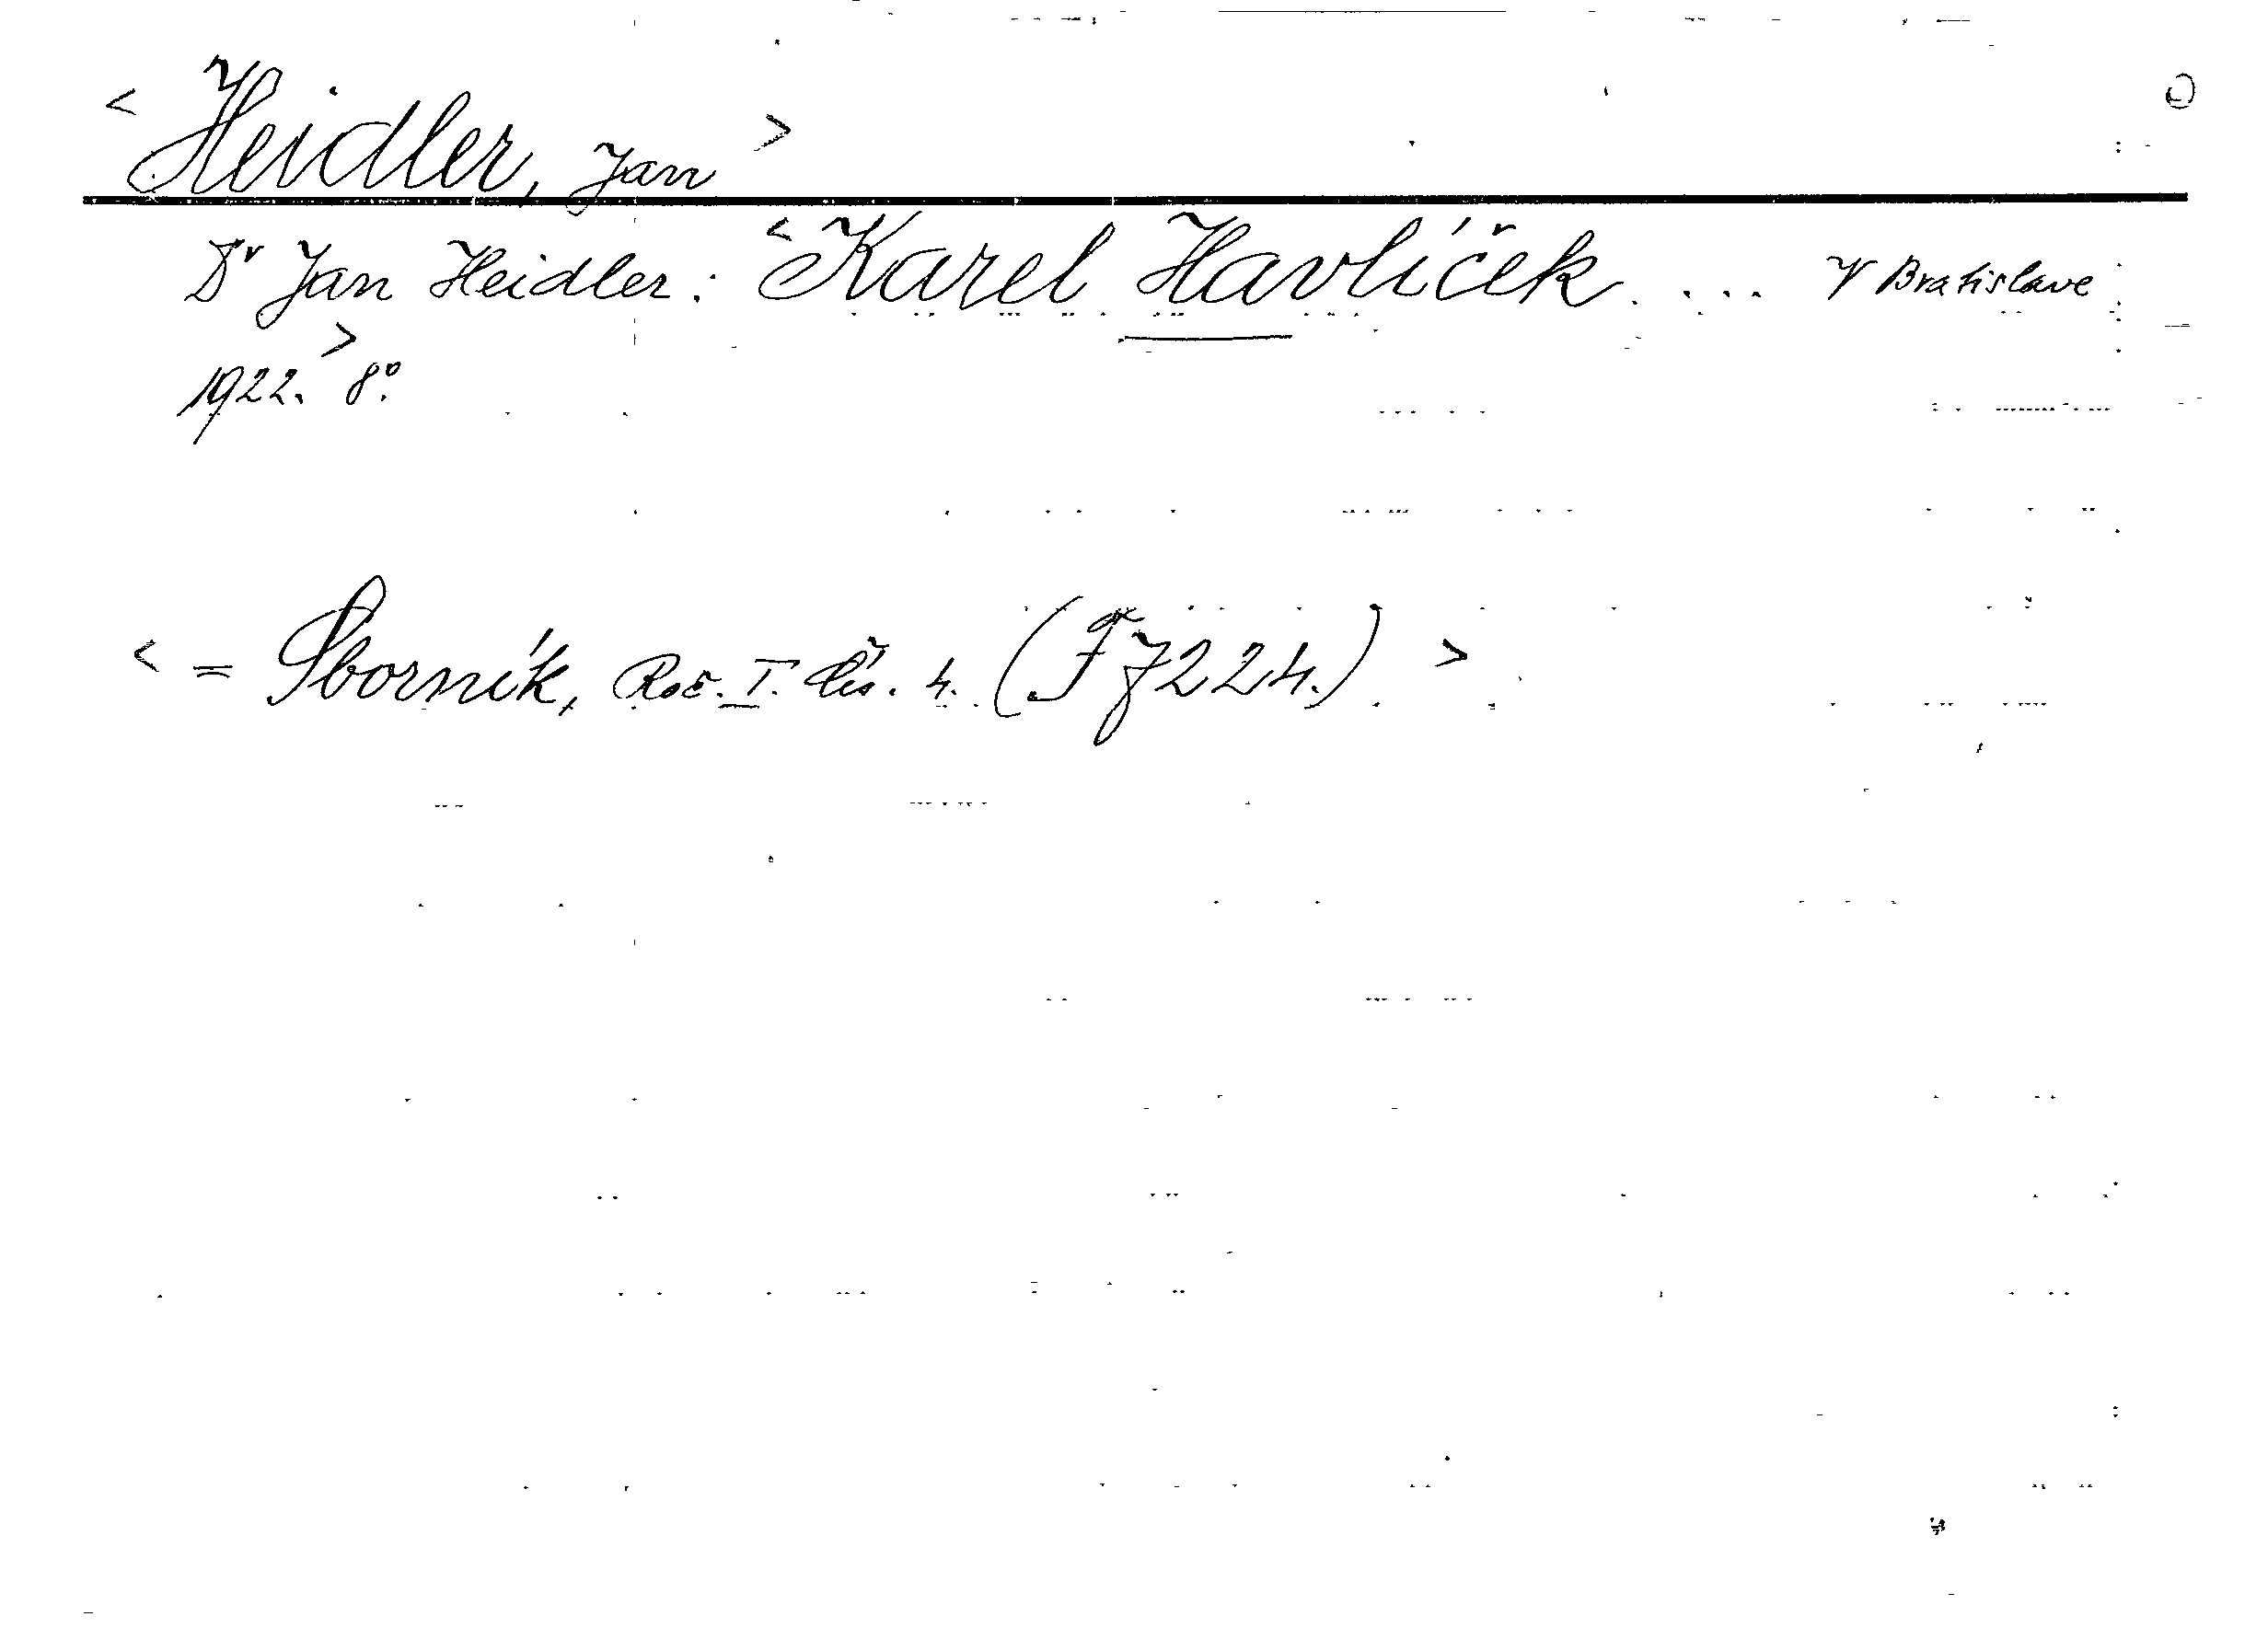 < Heidler, Jan >
Dr Jan Heidler: < Karel Havlíček. ... V Bratislave
1922. > 8°.
< = Sborník, Roč. I. čís. 4. (Fƶ224.) >